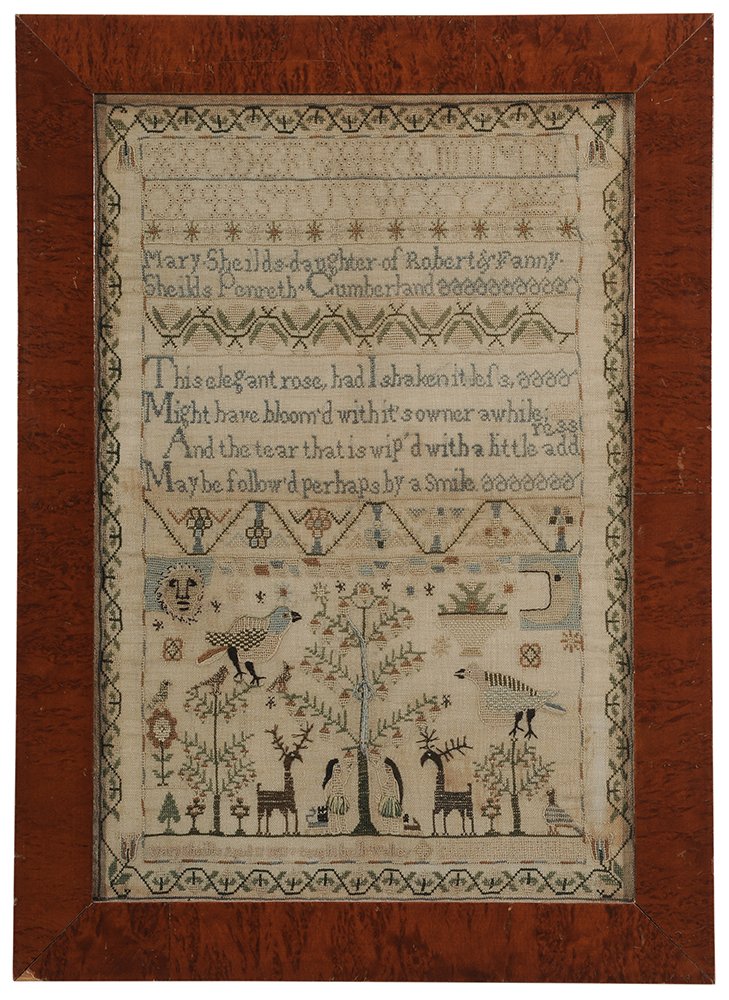 A B C D E F G H I K L M N
O P Q R S T U V W X Y Z
Mary Sheilds daughter of Robert & Fanny
Sheilds Penreth Cumberland
This elegant rose, had I shaken it leſs,
Might have bloom'd with it's owner awhile;
And the tear that is wip'd with a little address
May be follow'd perhaps by a Smile.